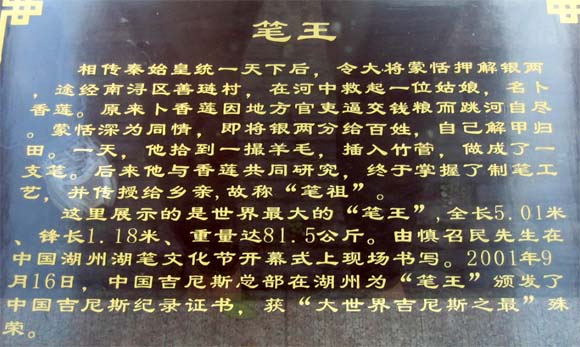 笔王
相传秦始皇统一天下后，令大将蒙恬押解银两
，途经南浔区善琏村，在河中救起一位姑娘，名卜
香莲。原来卜香莲因地方官吏逼交钱粮而跳河自尽
。蒙恬深为同情，即将银两分给百姓，自己解甲归
田。一天，他拾到一撮羊毛，插入竹营，做成了一
支笔。后来他与香莲共同研究，终于掌握了制笔工
艺，并传授给乡亲,故称“笔祖”。
这里展示的是世界最大的“笔王”,全长5.01米
、锋长1.18米、重量达81.5公斤。由慎召民先生在
中国湖州湖笔文化节开幕式上现场书写。2001年9
月16日，中国吉尼斯总部在湖州为“笔王”颁发了
中国吉尼斯纪录证书，获“大世界吉尼斯之最”殊
荣。